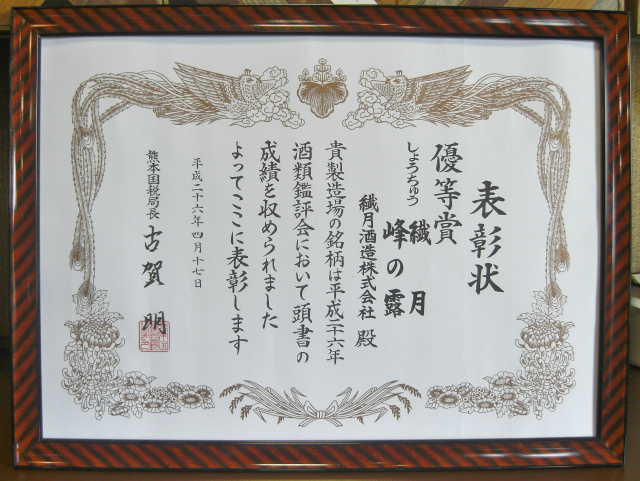 表彰状
優等賞
しょうちゅう
繊月
峰の露
繊月酒造株式会社 殿
貴製造場の銘柄は平成二十六年
酒類鑑評会において頭書の
成績を収められました
よってここに表彰します
平成二十六年四月十七日
熊本国税局長 古賀明